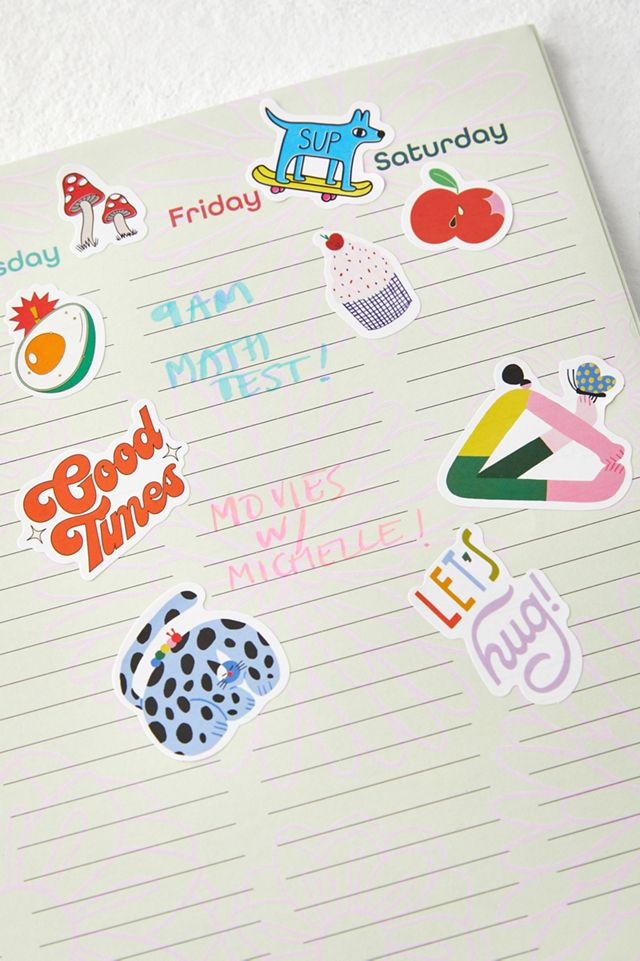 sday
Friday
SUP
Saturday
9AM
MATH
TEST!
Good
Times
MOVIES
W/
MICHELLE!
LET'S
hug!